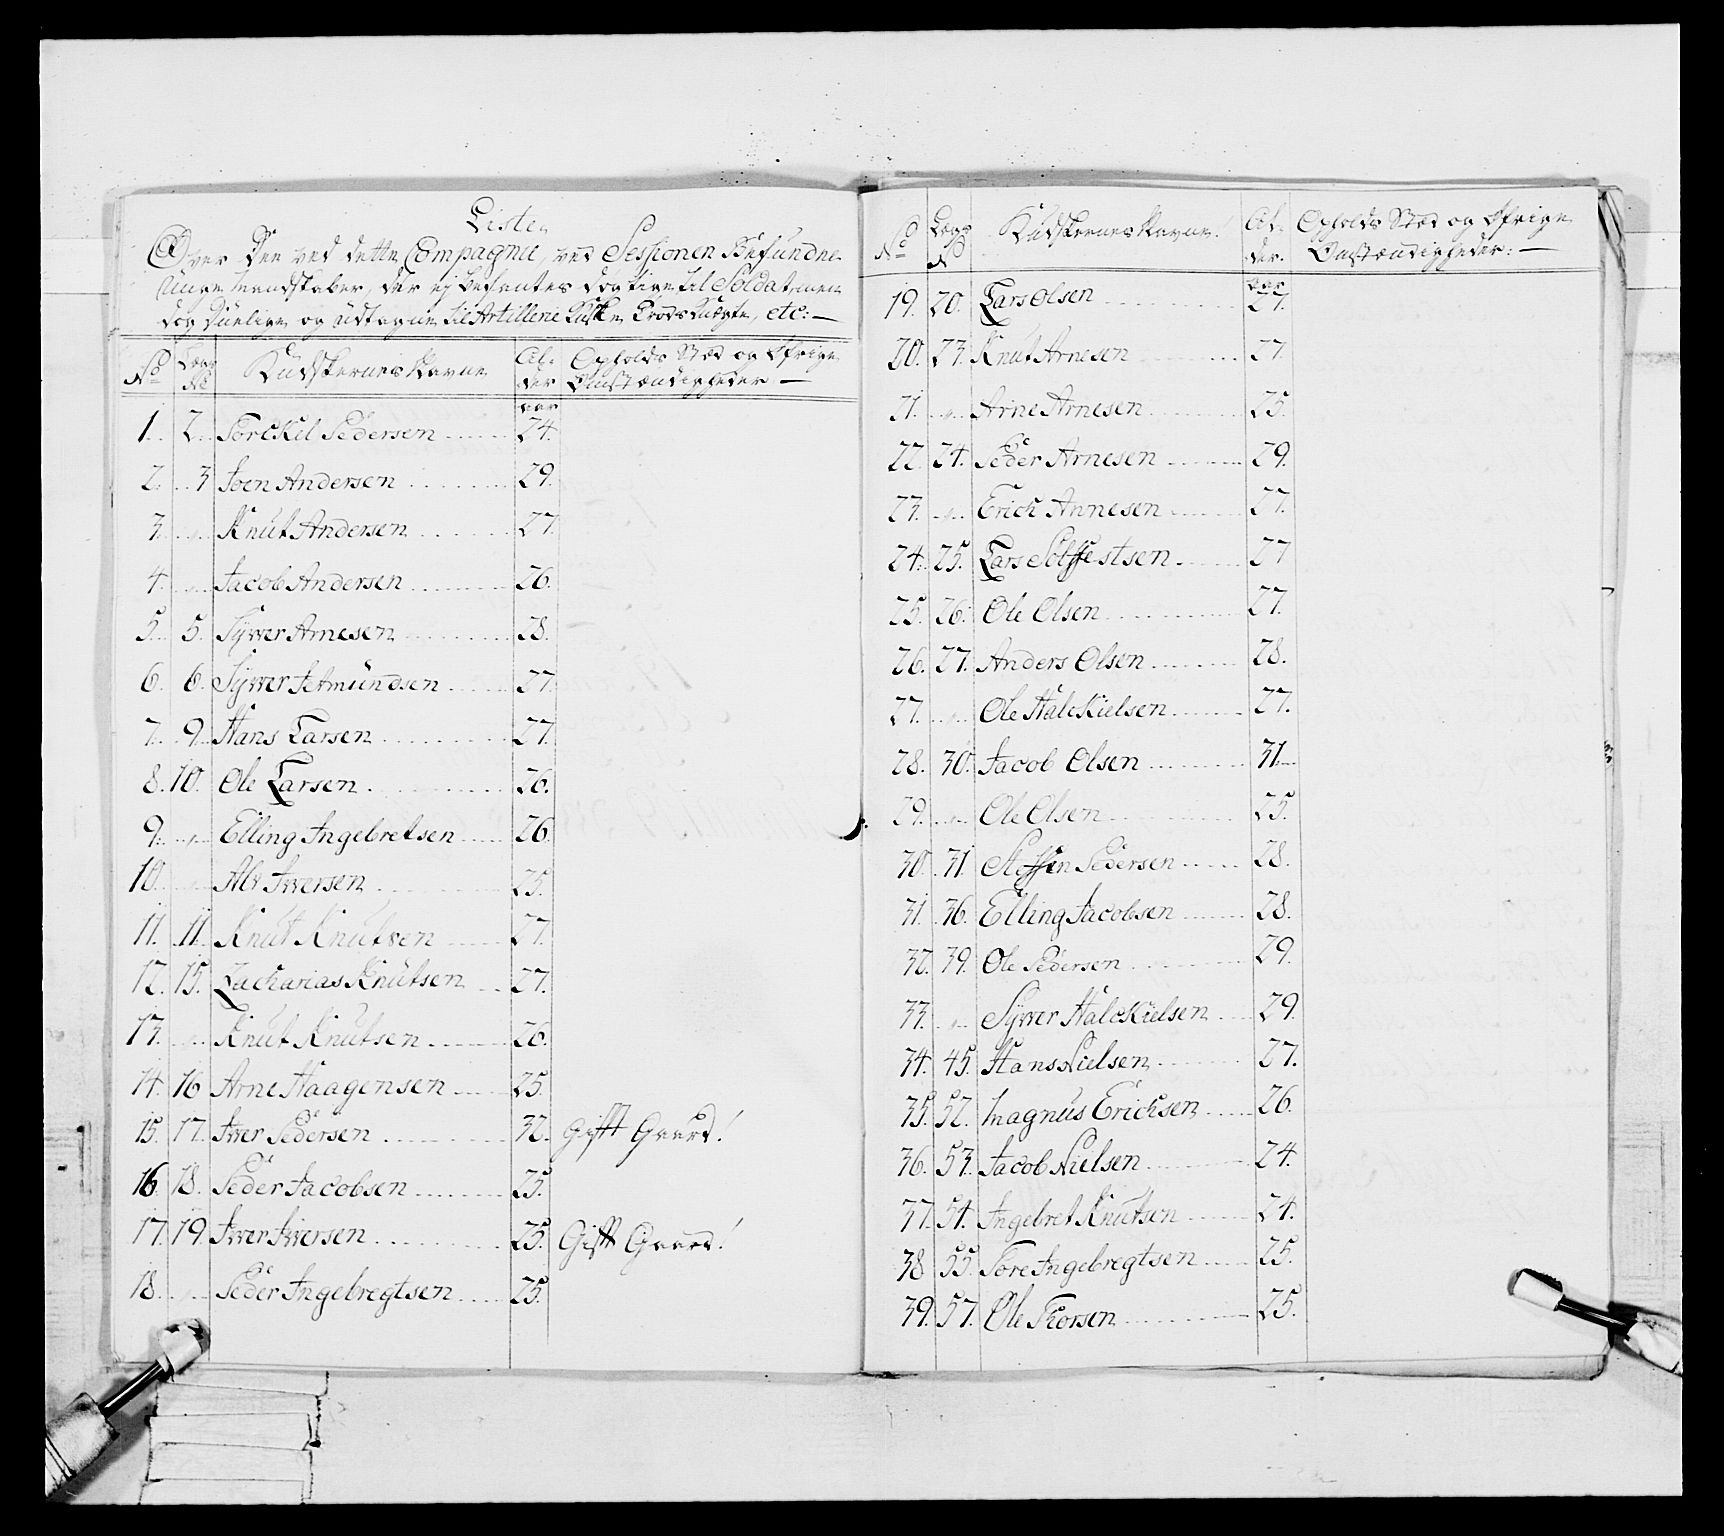 Liste
Over Den ved dette Compagnie, ved Sessionen Befundne
Unge Mandskaber, der ej befantes dögtige til Soldat, men
dog Duelige og udtagne til Artillerie Kuske Trods Knegte, etc:
No Lægs No Kudskernes Navne Al- der Opholds Stæd og Öfrige Omstændigheder
aar
1. 2. Torckel Pedersen 24.
2. 3 Joen Andersen 29.
3. " Knut Andersen 27.
4. " Jacob Andersen 26.
5. 5. Syver Arnesen 28.
6. 6. Syver Aamundsen 27.
7. 9. Hans Larsen 27.
8. 10. Ole Larsen 26.
9. " Elling Ingebretsen 26.
10. " Alv Iversen 25.
11. 11. Knut Knutsen 27.
12. 15. Zacharias Knutsen 27.
13. " Knut Knutsen 26.
14. 16 Arne Haagensen 25.
15. 17. Iver Pedersen 32. Gift Gaard!
16. 18. Peder Jacobsen 25.
17. 19. Iver Iversen 25. Gift Gaard!
18. " Peder Ingebregtsen 25.
No Lægs No Kudskernes Navne. Al- der. Opholds Stæd og Öfrige Omstændigheder:
aar
19. 20. Lars Olsen 27.
20. 23. Knut Arnesen 27
21. " Arne Arnesen 25.
22. 24. Peder Arnesen 29.
23. " Erich Annesen 27.
24. 25. Lars Solffestsen 27
25. 26. Ole Olsen 27.
26. 27. Anders Olsen 28.
27. " Ole Halckielsen 27.
28. 30. Jacob Olsen 31.
29. " Ole Olsen 25.
30. 31. Steffen Pedersen 28.
31. 36. Elling Jacobsen 28.
32. 39. Ole Pedersen 29.
33. " Syver Halckielsen 29.
34. 45. Hans Nielsen 27.
35. 52. Magnus Ericksen 26.
36. 53. Jacob Nielsen 24.
37. 54. Ingebret Knutsen 24.
38 55. Tore Ingebregtsen 25.
39. 57. Ole Thorsen 25.